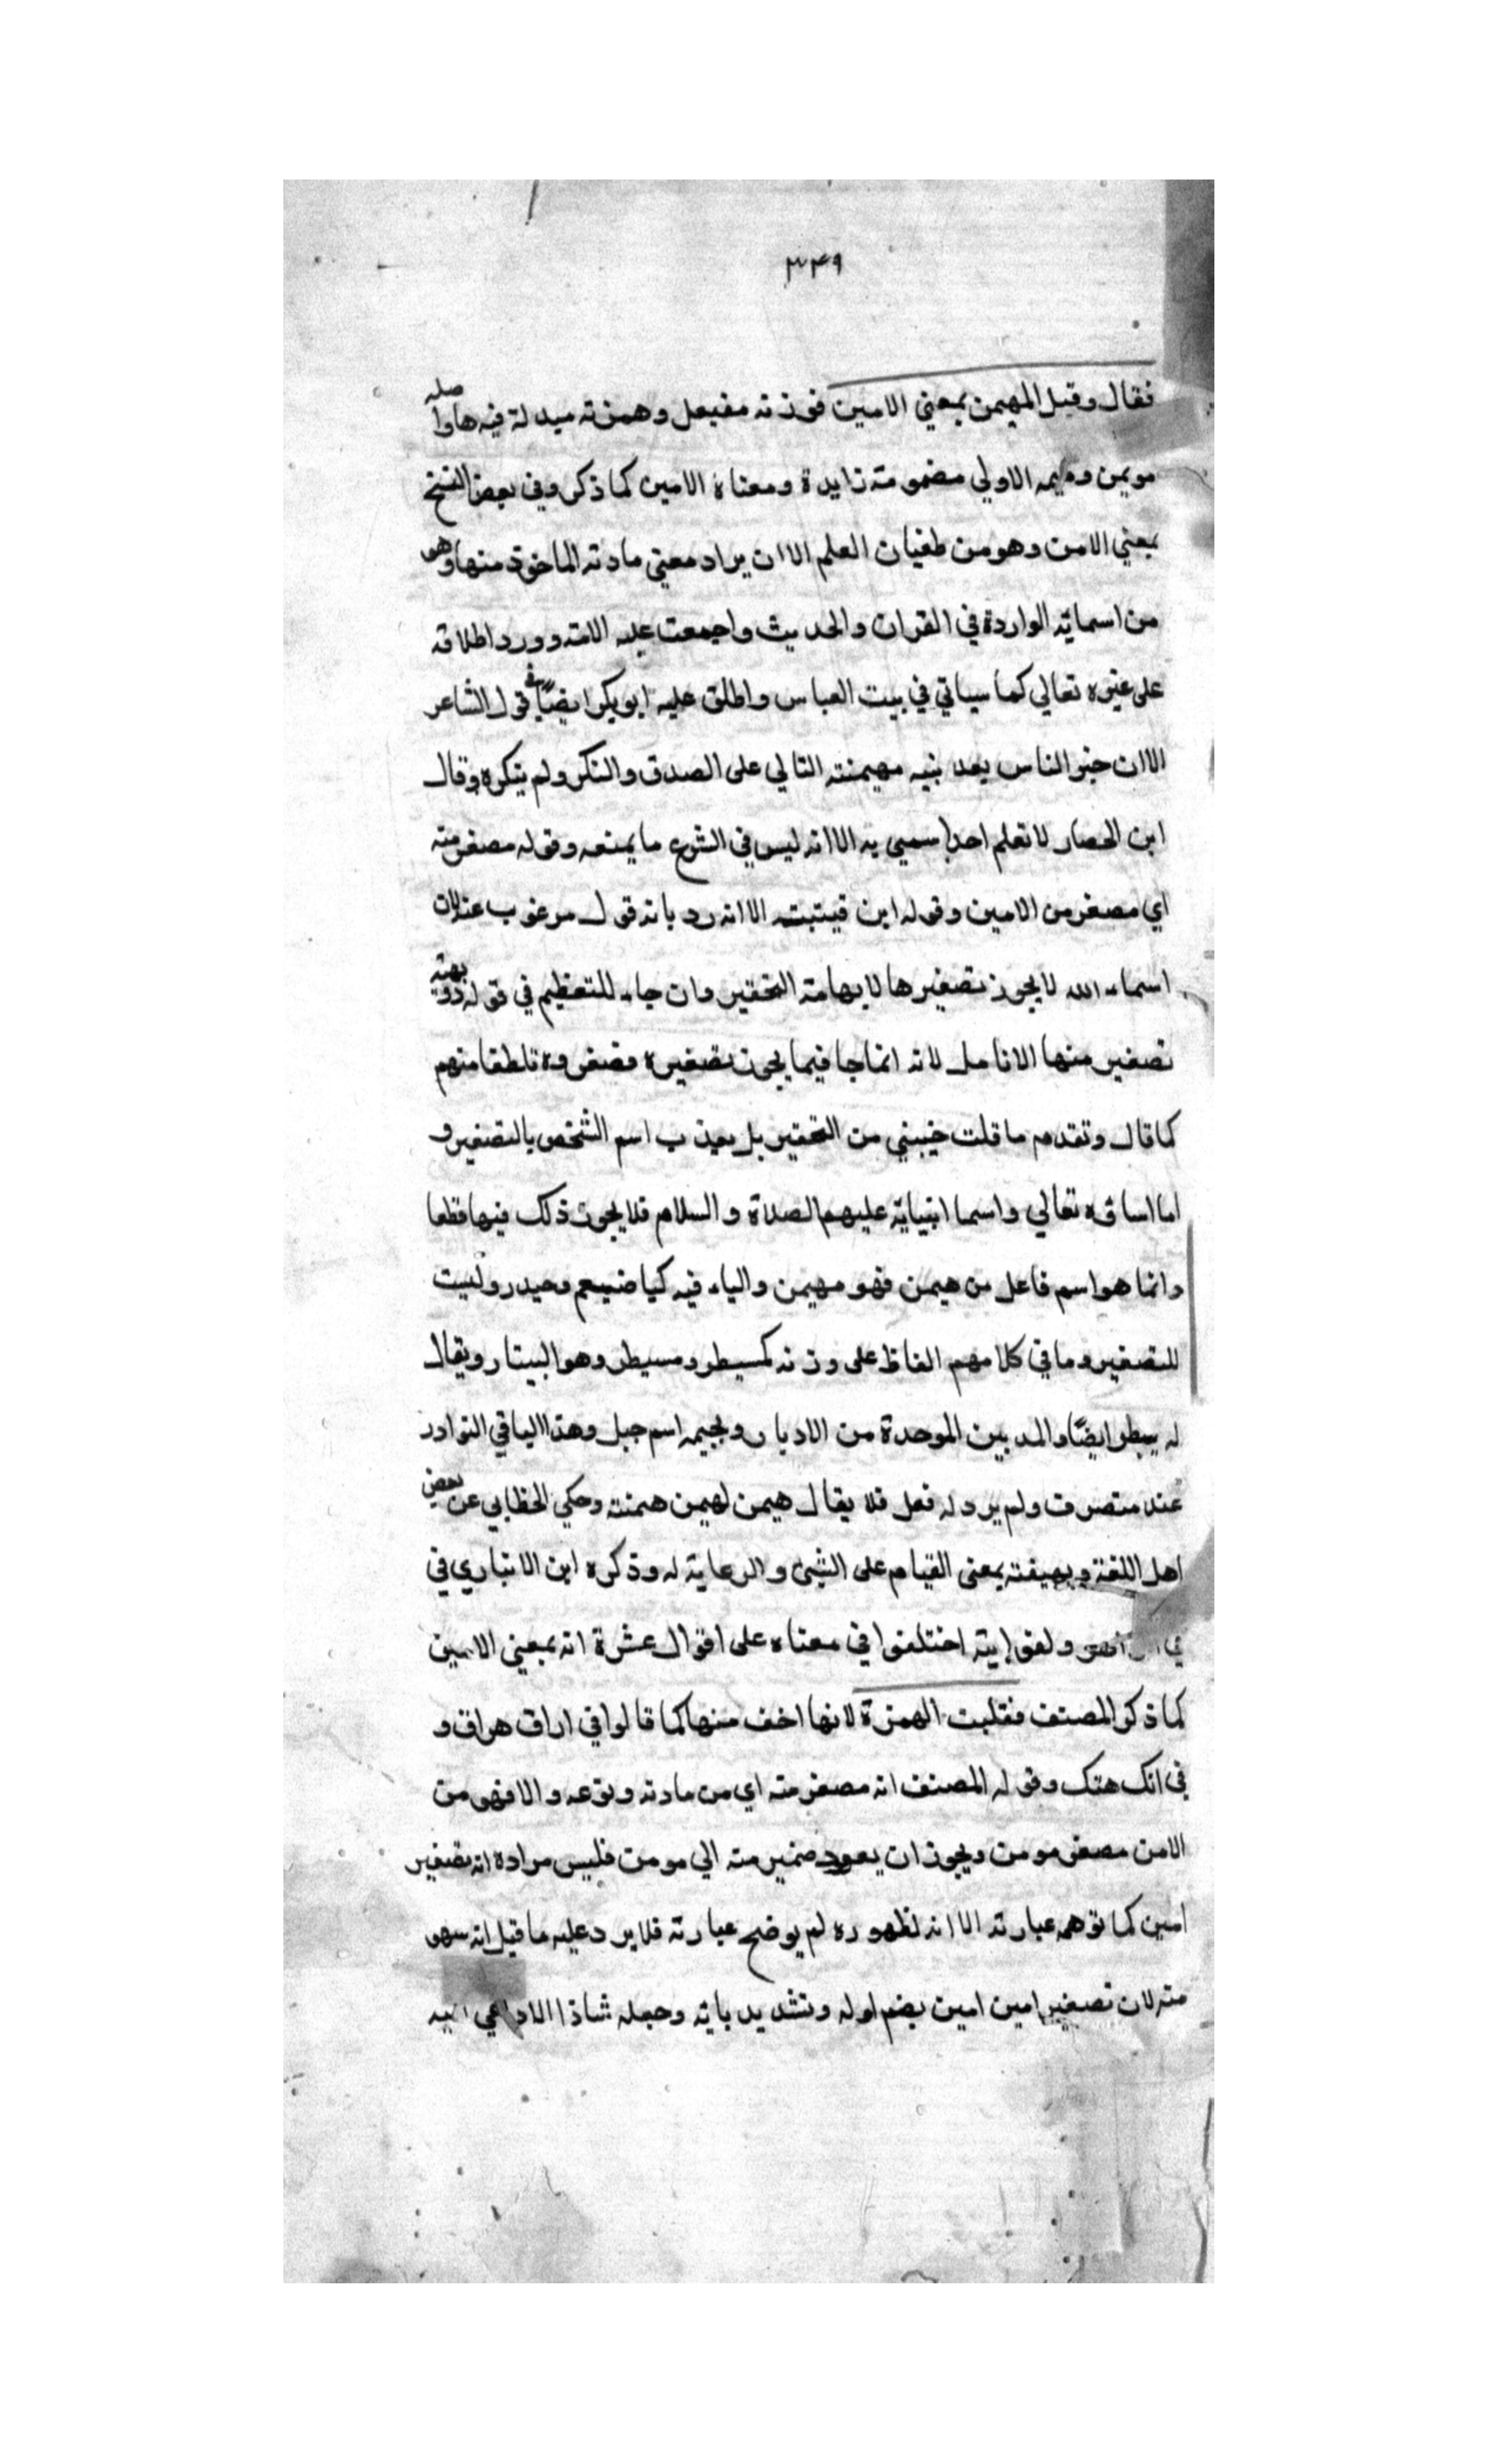 ٣٤٩
فقال وقيل المهيمن بمعني الامين فوزنه مفيعل وهمزته مبدلة فيه هاواصله
مويمن وميمه الاولي مضمومة زايدة ومعناه الامين كما ذكر وفي بعض النسخ
بمعني الامن وهو من طغيان العلم الا ان يراد معني مادته الماخوذ منها وهو
من اسمائه الواردة في القران والحديث واجمعت عليه الامة وورد اطلاقه
على غيره تعالي كما سياتي في بيت العباس واطلق عليه ابو بكر ايضًا في قول الشاعر
الا ان خير الناس بعد نبيه مهيمنته التالي على الصدق والنكر ولم ينكره وقال
ابن الحصار لا نعلم احدا سمي به الا انه ليس في الشرع ما يمنعه وقوله مصغر منه
اي مصغر من الامين وقوله ابن قيتبت الا انه رد بانه قول مرغوب عنه لان
اسماء الله لا يجوز تصغيرها لايهامه التحقير وان جاء للتعظيم في قوله دويهية
تصغير منها الانامل لانه انما جا فيما يجوز تصغيره فصغروه تلطفا منهم
كما قال وتقدم ما قلت حبيبي من التحقير بل يعذب اسم الشخص بالتصغير و
اما اساوه تعالي واسما انبيائه عليهم الصلاة والسلام فلا يجوز ذلك فيها قطعا
وانما هو اسم فاعل من هيمن فهو مهيمن والياء فيه كيا ضيعم وحيدر وليست
للتصغير وما في كلامهم الفاظ على وزنه كمسيطر ومسيطر وهو البيتار ويقال
له يبطر ايضًا والمد بين الموحدة من الادبار وبجيمه اسم جبل وهذا اليا في النوادر
عند متصرف ولم يرد له فعل فلا يقال هيمن لهيمن همنته وحكي الخطابي عن بعض
اهل اللغة وبهيفته بمعنى القيام على الشئ والرعاية له وذكره ابن الانباري في
اختلفوا في معناه على اقوال عشرة انه بمعني الامين
كما ذكر المصنف فقلبت الهمزة لانها اخف منها كما قالوا في اراق هراق و
في انك هتك وقوله المصنف انه مصغر منه اي من مادته ونوعه والا فهو من
الامن مصغر مومن ويجوز ان يعود ضمير منه الي مومن فليس مراده انه تصغير
امين كما توهمه عبارته الا انه لظهوره لم يوضح عبارته فلا يرد عليه ما قيل انه سهو
منه لان تصغير امين امين بضم اوله وتشديد يائه وجعله شاذا